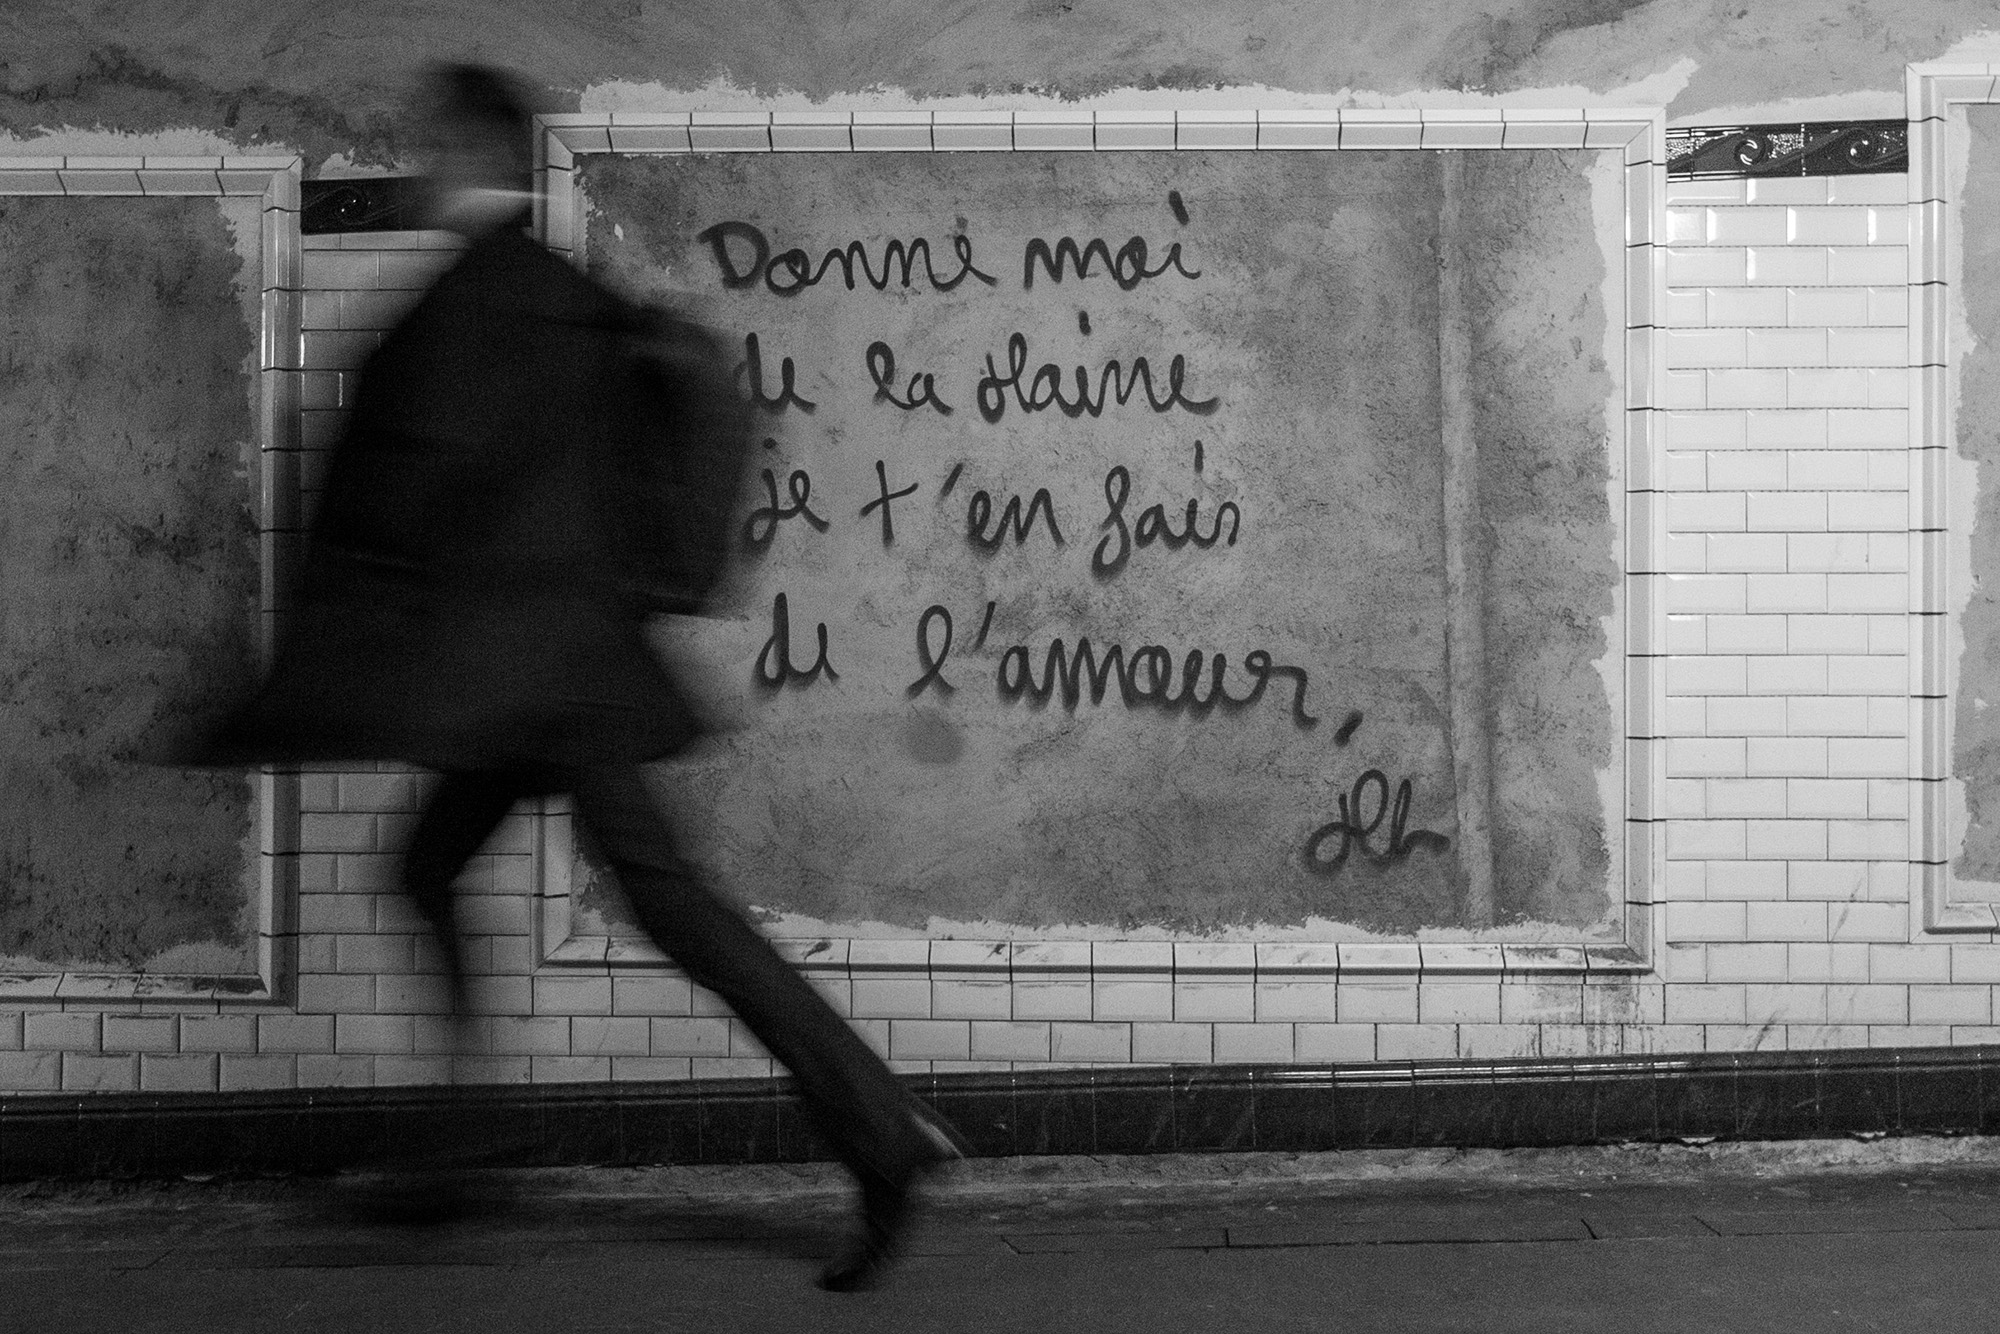 Donne moi
de la Haine
je t'en fais
de l'amour,